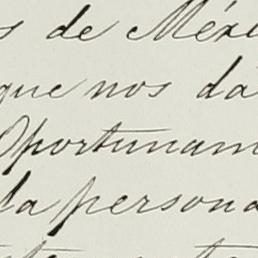 s de Méxi
que nos dá
Oportunam
la persona